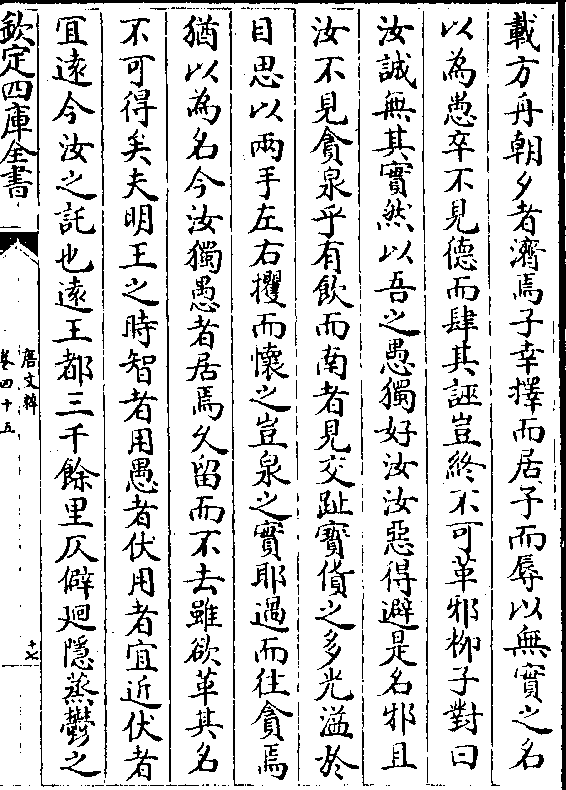 載方舟朝夕者濟焉子幸擇而居子而辱以無實之名
以為愚卒不見德而肆其誣豈終不可革邪柳子對曰
汝誠無其實然以吾之愚獨好汝汝惡得避是名邪且
汝不見貪泉乎有飲而南者見交趾寳貨之多光溢於
目思以兩手左右攫而懐之豈泉之實耶過而往貪焉
猶以為名今汝獨愚者居焉久留而不去雖欲革其名
不可得矣夫明王之時智者用愚者伏用者宜近伏者
宜遠今汝之託也遠王都三千餘里仄僻廻隱蒸鬱之
欽定四庫全書
唐文粹
卷四十五
十七